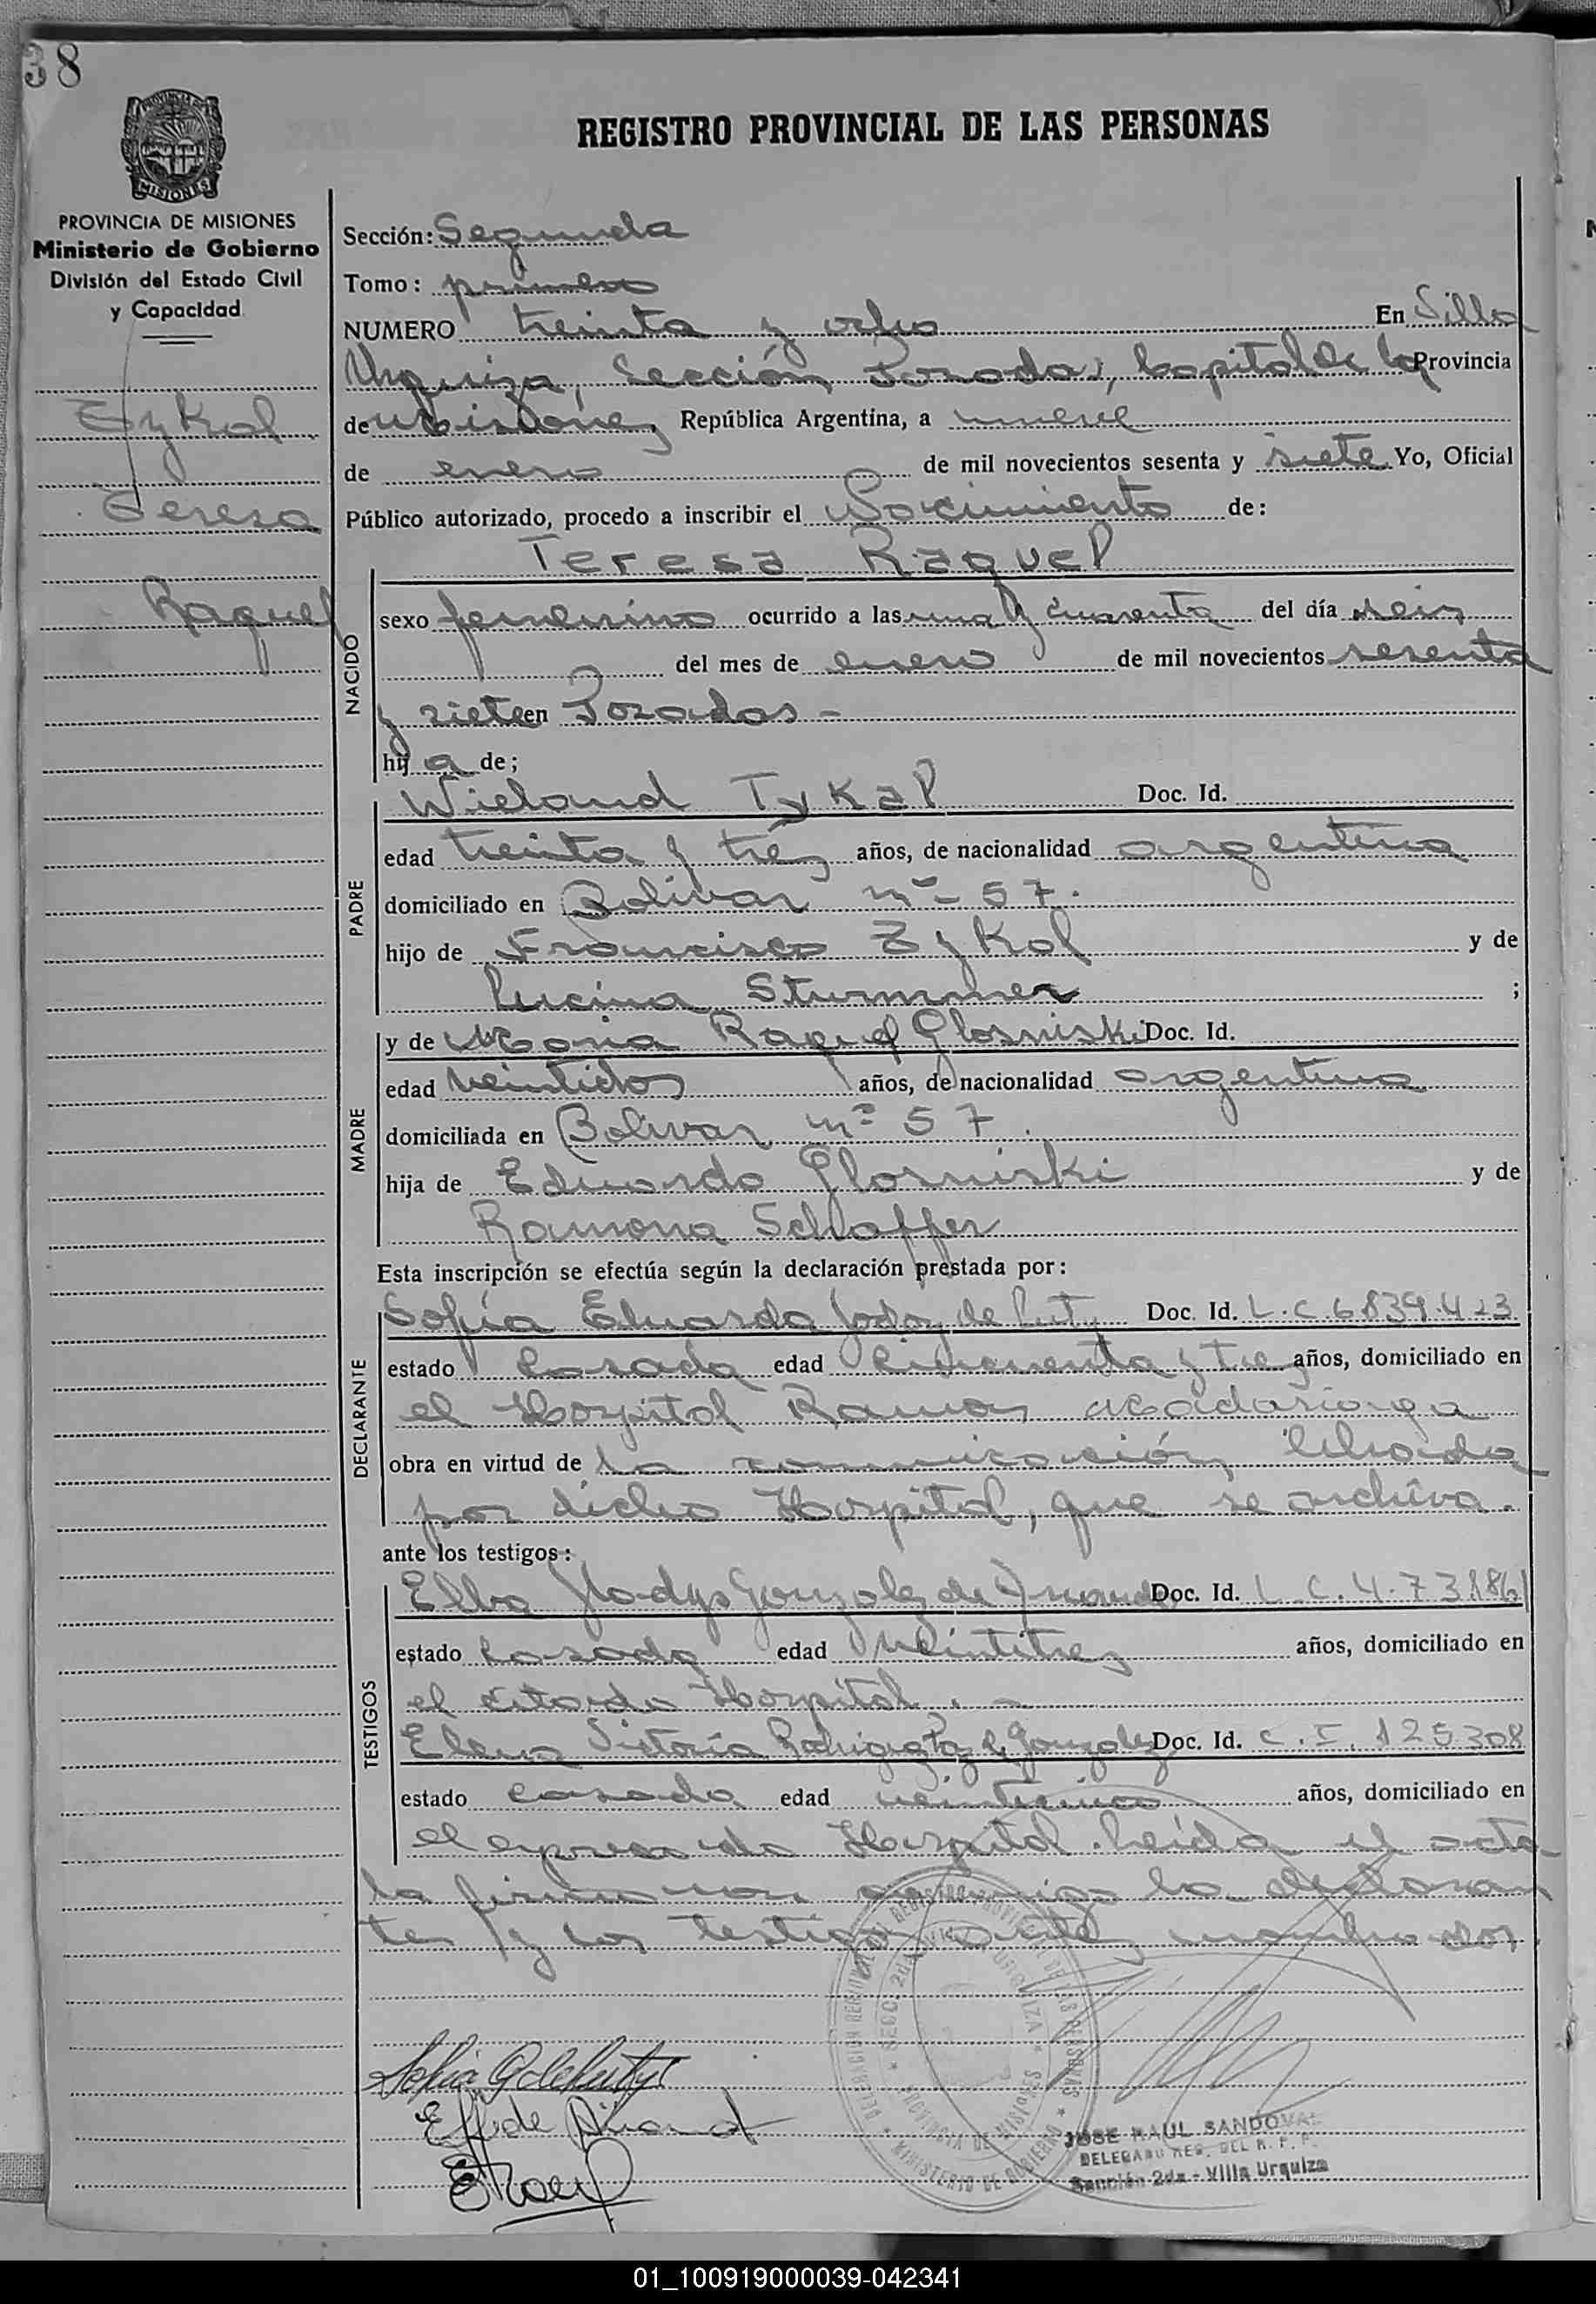 38
REGISTRO PROVINCIAL DE LAS PERSONAS
MISIONES
PROVINCIA DE MISIONES
Ministerio de Gobierno
División del Estado Civil
y Capacidad
Tykal
Teresa
Raquel
Sección: Segunda
Tomo: primero
NUMERO treinta y ocho En Villa
Urquiza, Sección Posadas, Capital de la Provincia
de Misiones, República Argentina, a nueve
de enero de mil novecientos sesenta y siete Yo, Oficial
Público autorizado, procedo a inscribir el Nacimiento de:
Teresa Raquel
NACIDO
sexo femenino ocurrido a las una y cuarenta del día seis
del mes de enero de mil novecientos sesenta
y siete en Posadas -
hij a de;
PADRE
Wieland Tykal Doc. Id.
edad treinta y tres años, de nacionalidad argentina
domiciliado en Bolivar nº 57.
hijo de Francisco Tykal y de
Lucina Sturmmer ;
MADRE
y de Maria Raquel Glosniski Doc. Id.
edad veintidos años, de nacionalidad argentina
domiciliada en Bolivar nº 57.
hija de Eduardo Glosniski y de
Ramona Schaffer
Esta inscripción se efectúa según la declaración prestada por:
DECLARANTE
Sofía Eduarda Godoy de Doc. Id. L.C. 6.839.423
estado casada edad cincuenta y tres años, domiciliado en
el Hospital Ramon Madariaga
obra en virtud de la comunicación librada
por dicho Hospital, que se archiva.
ante los testigos:
TESTIGOS
Elba Gladys Gonzalez de Doc. Id. L.C. 4.731.861
estado casada edad veintitres años, domiciliado en
el citado Hospital. -
Elena Victoria Rodriguez de Gonzalez Doc. Id. C.I. 125308
estado casada edad veinticinco años, domiciliado en
el expresado Hospital. Leida el acta
la firmaron conmigo la declaran
te y los testigos nombrados.
JOSE RAUL SANDOVAL
DELEGADO REG. DEL R. P. P.
Sección 2da - Villa Urquiza
01_100919000039-042341